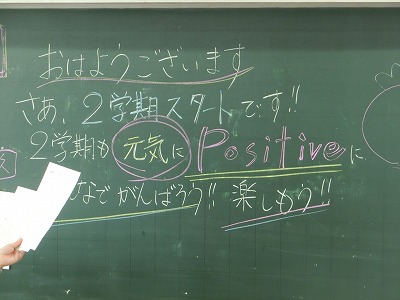 おはようございます
さあ、2学期スタートです!!
2学期も元気にPositiveに
なでがんばろう!! 楽しもう!!